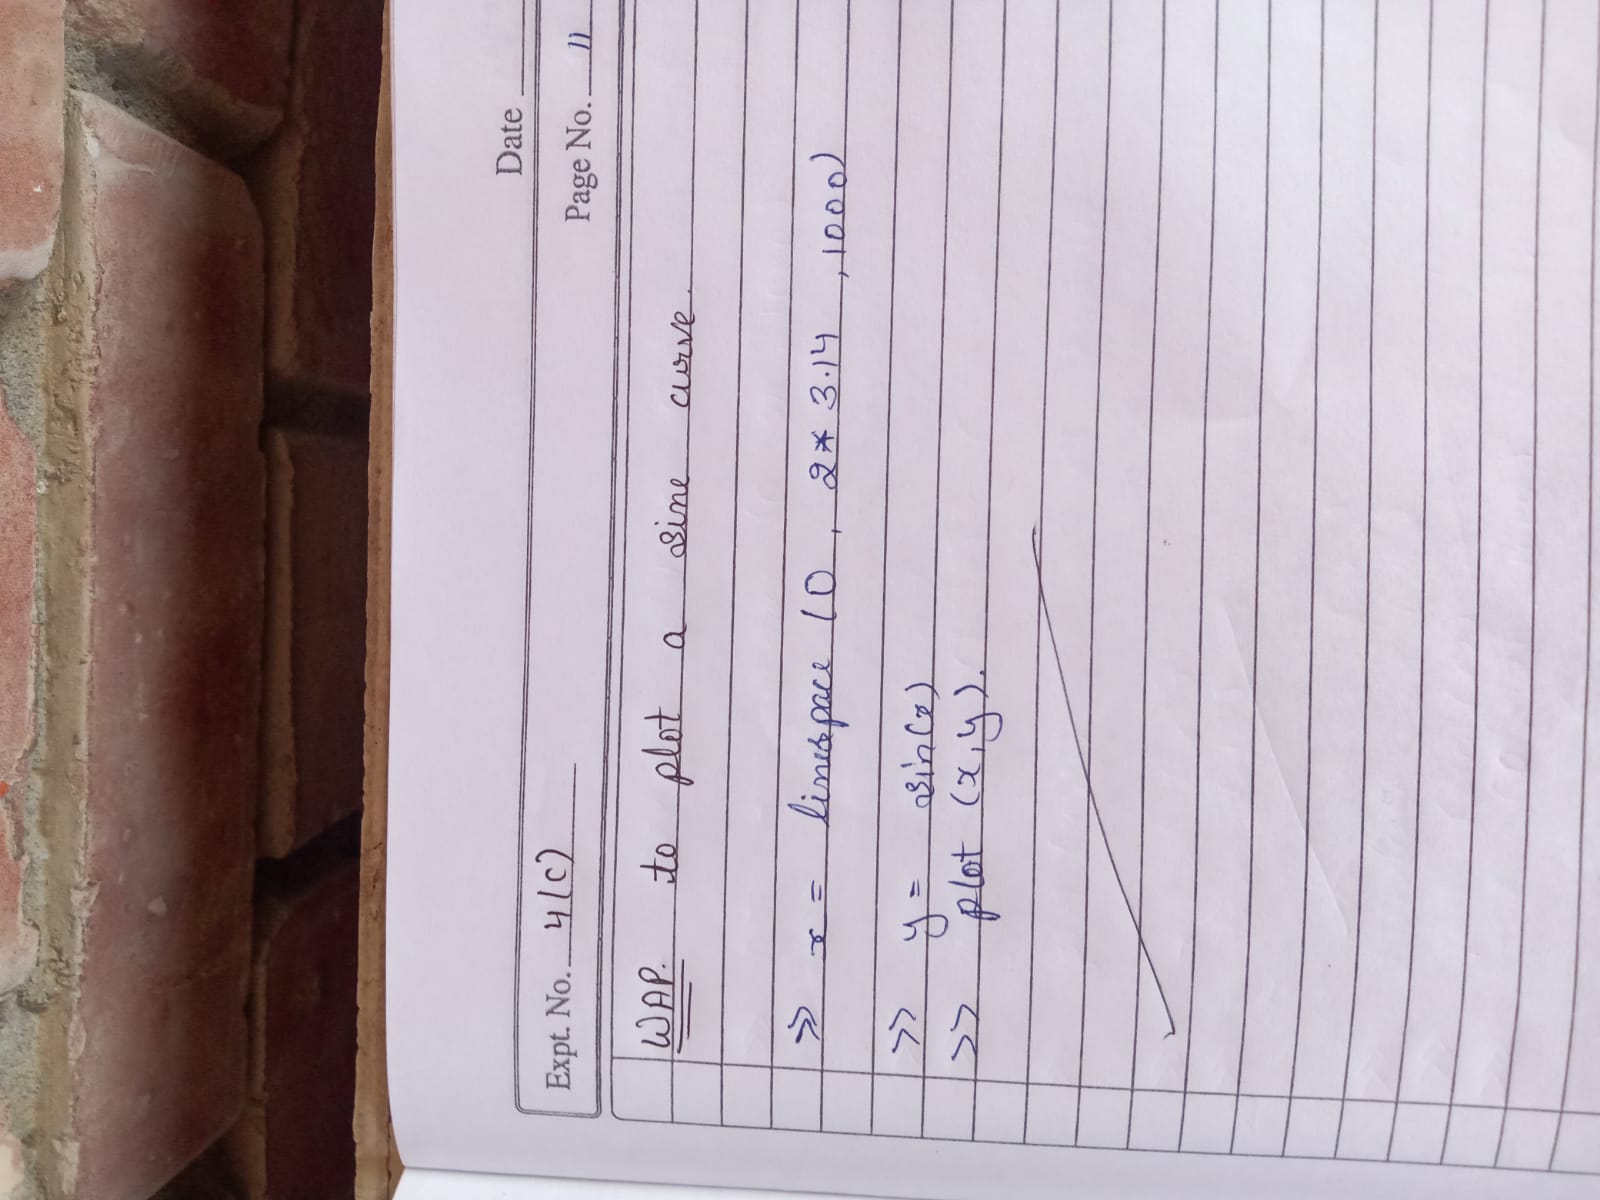 Date
Expt. No. 4(C)
Page No. 11
WAP. to plot a sine curve.
>> x = linespace (0, 2* 3.14, 1000)
>> y = sin(x)
>> plot (x,y).